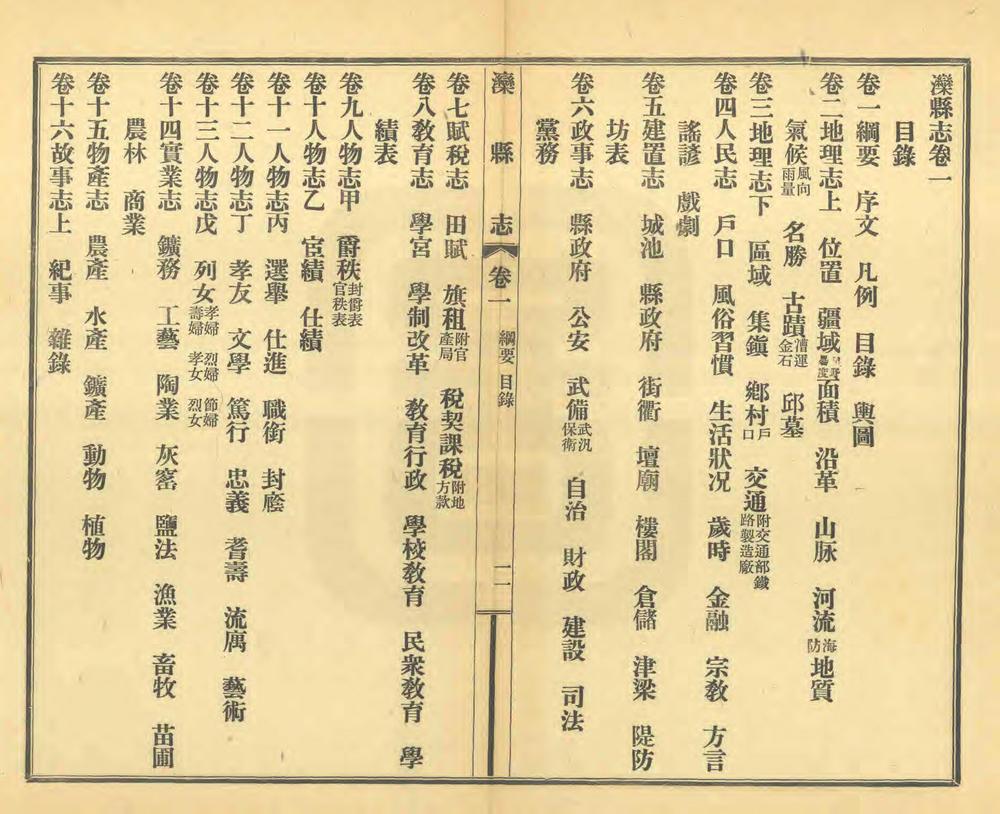 灤縣志卷一
目錄
卷一綱要 序文 凡例 目錄 輿圖
卷二地理志上 位置 疆域 面積 沿革 山脉 河流海防 地質
氣候風向雨量 名勝 古蹟漕運金石 邱墓
卷三地理志下 區域 集鎭 鄉村戶口 交通附交通部鐵路製造廠
卷四人民志 戶口 風俗習慣 生活狀况 歲時 金融 宗敎 方言
謠諺 戲劇
卷五建置志 城池 縣政府 街衢 壇廟 樓閣 倉儲 津梁 隄防
坊表
卷六政事志 縣政府 公安 武備武汛保衛 自治 財政 建設 司法
黨務
灤縣志 卷一 綱要 目錄 二一
卷七賦稅志 田賦 旗租附官產局 稅契課稅附地方款
卷八敎育志 學宮 學制改革 敎育行政 學校敎育 民衆敎育 學
績表
卷九人物志甲 爵秩封爵表官秩表
卷十人物志乙 宦績 仕績
卷十一人物志丙 選舉 仕進 職銜 封廕
卷十二人物志丁 孝友 文學 篤行 忠義 耆壽 流寓 藝術
卷十三人物志戊 列女孝婦 烈婦 節婦 壽婦 孝女 烈女
卷十四實業志 鑛務 工藝 陶業 灰窰 鹽法 漁業 畜牧 苗圃
農林 商業
卷十五物產志 農產 水產 鑛產 動物 植物
卷十六故事志上 紀事 雜錄